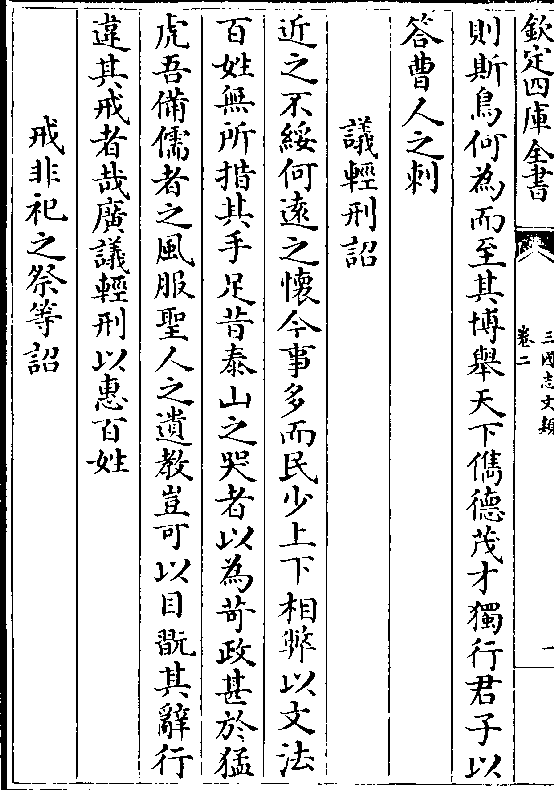 欽定四庫全書
三國志文類
卷二
一
則斯鳥何為而至其博舉天下儁德茂才獨行君子以
答曹人之刺
議輕刑詔
近之不綏何遠之懷今事多而民少上下相弊以文法
百姓無所措其手足昔泰山之哭者以為苛政甚於猛
虎吾備儒者之風服聖人之遺教豈可以目翫其辭行
違其戒者哉廣議輕刑以惠百姓
戒非祀之祭等詔